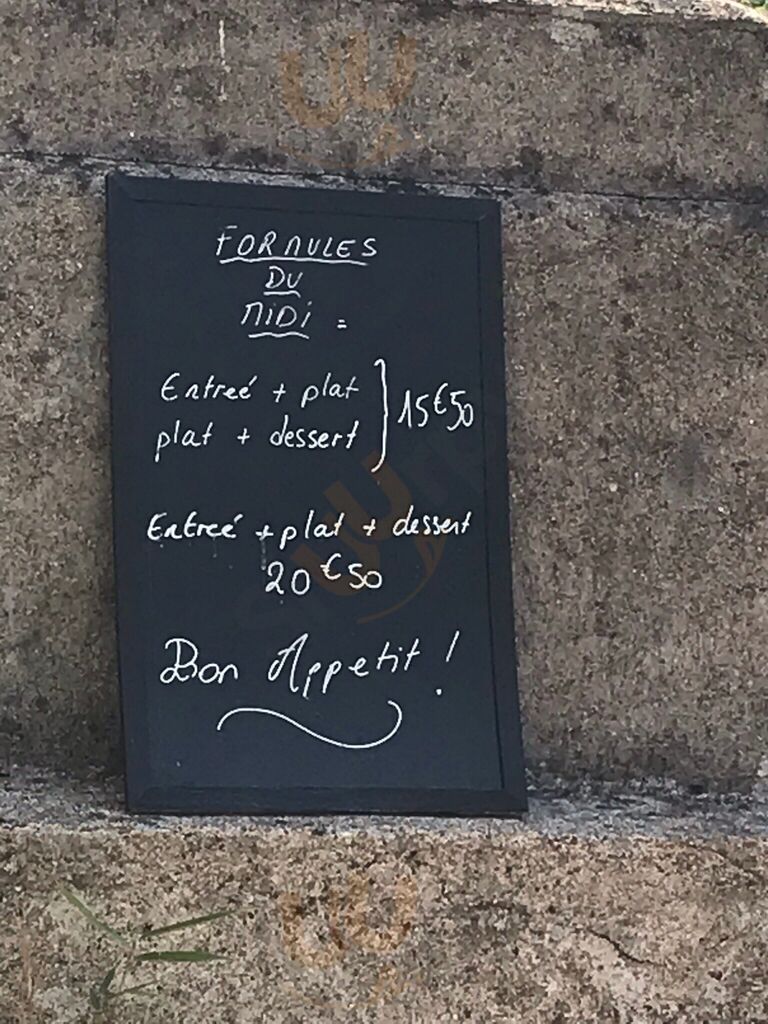 FORMULES
DU
MIDI :
Entreé + plat
plat + dessert } 15€50
Entreé + plat + dessert
20€50
Bon Appetit !